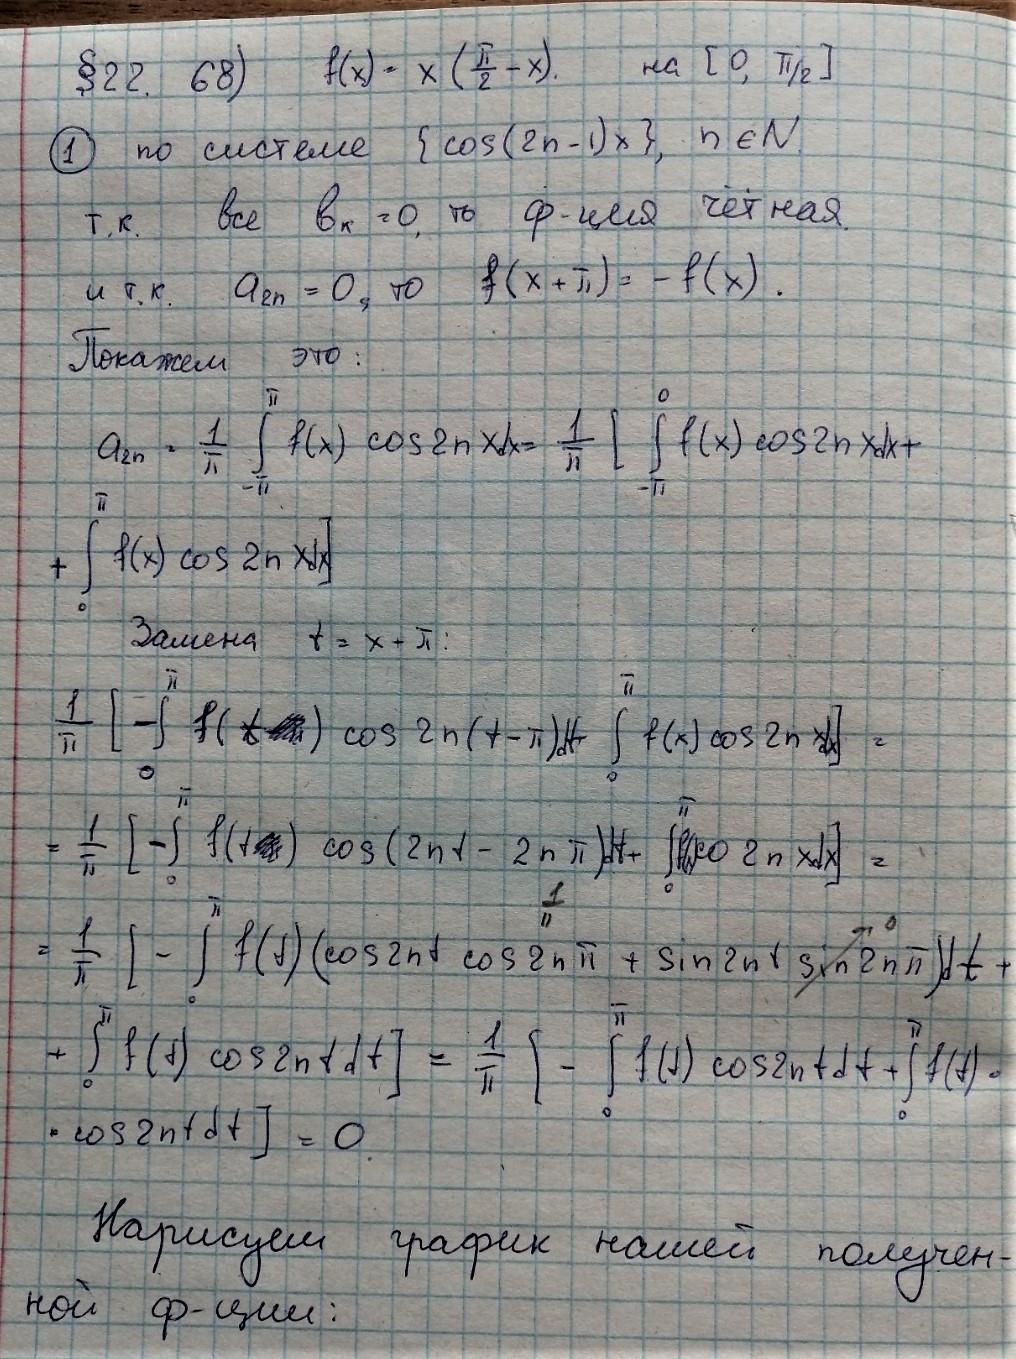 §22. 68) f(x) = x (π/2 - x). на [0, π/2]
① по системе {cos(2n-1)x}, n ∈ N.
т.к. все bₖ = 0, то ф-ция чётная.
и т.к. a₂ₙ = 0, то f(x + π) = - f(x).
Покажем это:
a₂ₙ = 1/π ∫_{-π}^{π} f(x) cos2nxdx = 1/π [ ∫_{-π}^{0} f(x) cos2nxdx +
+ ∫_{0}^{π} f(x) cos 2n xdx]
Замена t = x + π:
1/π [ - ∫_{0}^{π} f(t) cos 2n(t - π)dt + ∫_{0}^{π} f(x) cos 2n xdx] =
= 1/π [ - ∫_{0}^{π} f(t) cos(2nt - 2nπ)dt + ∫_{0}^{π} f(x)co 2n xdx] =
= 1/π [ - ∫_{0}^{π} f(t) (cos2nt cos2nπ + sin2nt sin2nπ)dt +
+ ∫_{0}^{π} f(t) cos2nt dt] = 1/π [ - ∫_{0}^{π} f(t) cos2nt dt + ∫_{0}^{π} f(t) ·
· cos2nt dt] = 0.
Нарисуем график нашей получен-
ной ф-ции: